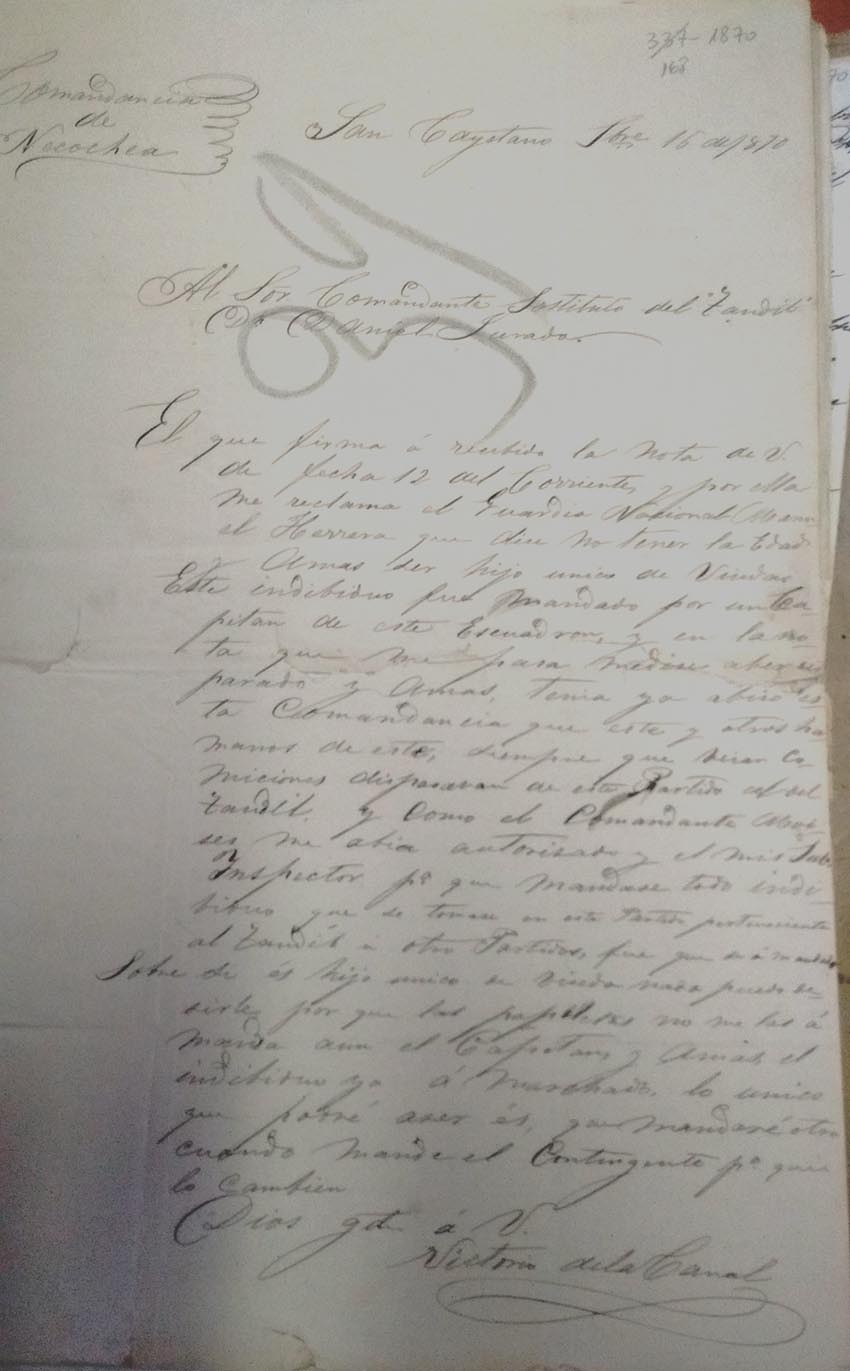 337 - 1870
167
Comandancia
de
Necochea
San Cayetano Sbre 16 de 1870
Al Sor Comandante Sostituto del "Tandil"
Dn Daniel Jurado.
El que firma á recibido la Nota de V.
de fecha 12 del Corriente, y por ella
me reclama el Guardia Nacional Manu
el Herrera que dice no tener la Edad
y Amas ser hijo unico de Viuda.
Este indibiduo fue mandado por un Ca-
pitan de este Escuadron, y en la no-
ta que me pasa medise aber se
parado y Amas, tenia ya abiso es-
ta Comandancia que este y otros her
manos de este, siempre que veian Co-
miciones disparavan de este Partido al del
Tandil, y Como el Comandante
me abia autorizado y el mis Sub.
Inspector pa que mandase todo indi-
biduo que se tomase en este Partido perteneciente
al Tandil u otro Partidos, fue que se á mandado
Sobre si és hijo unico de Viuda nada puedo de-
sirle por que las papeletas no me las á
manda aun el Capitan, y Amas el
indibiduo ya á Marchado, lo unico
que podré aser és, que mandaré otro
cuando mande el Contingente pa que
lo cambien
Dios gde á V.
Victorio de la Canal